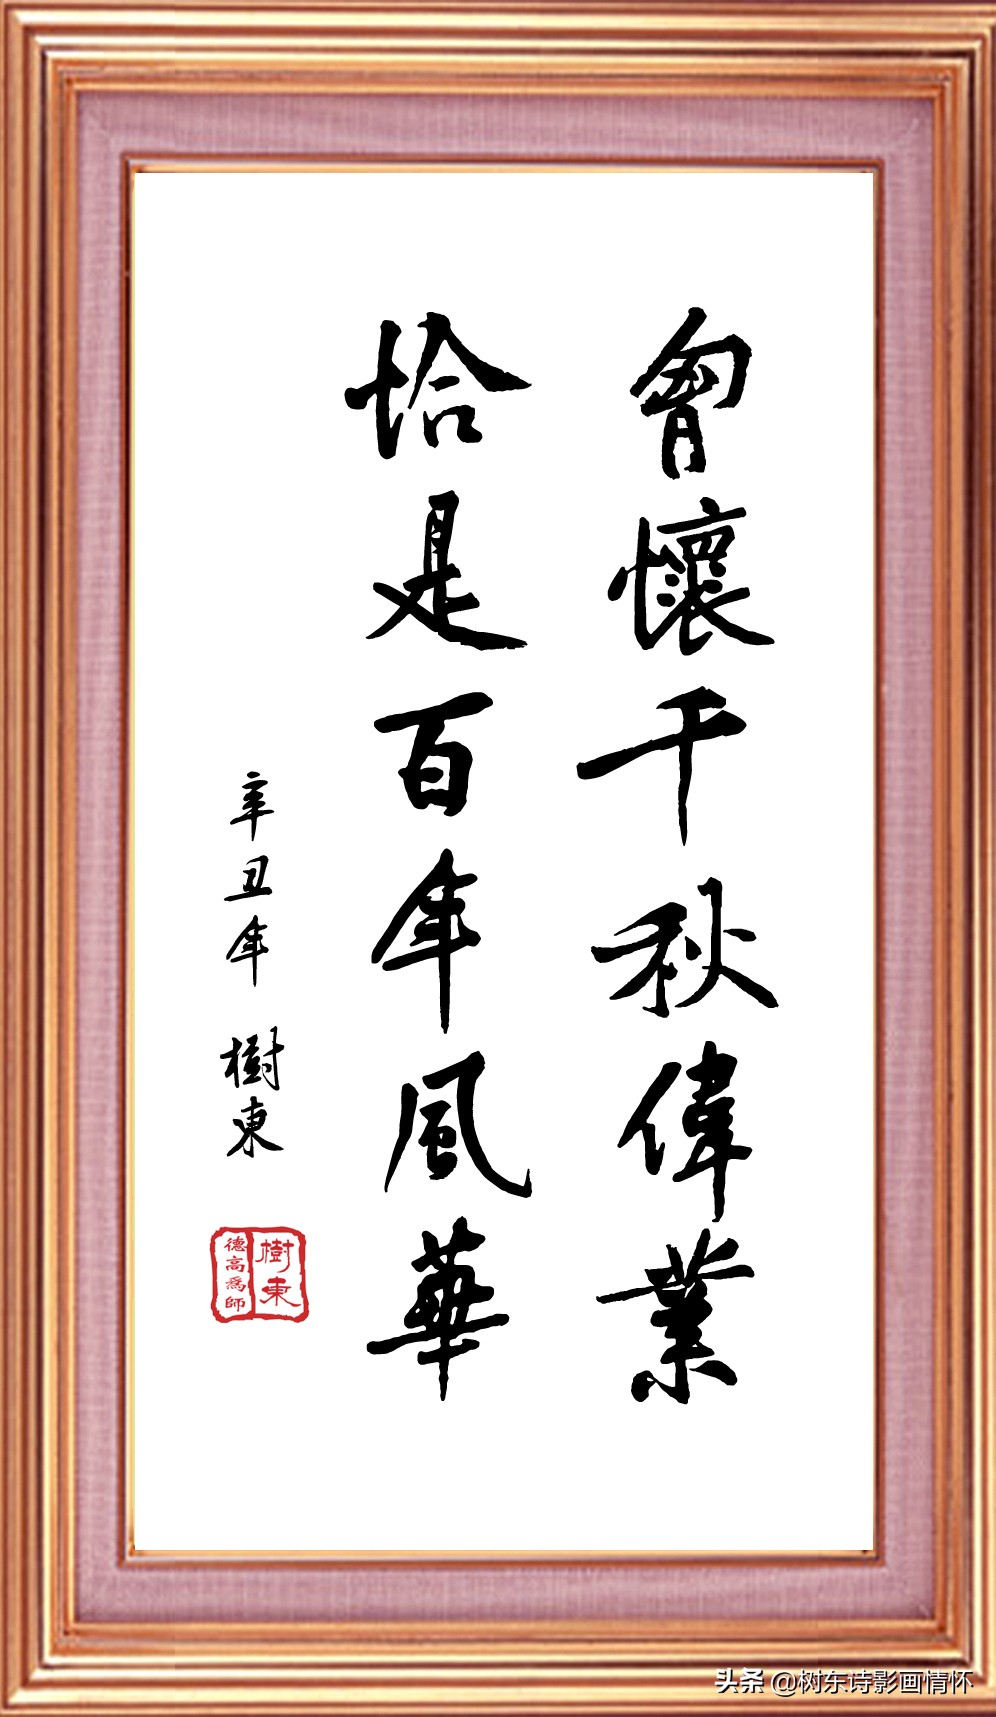 曾懷千秋偉業
恰是百年風華
辛丑年 樹東
樹東
德高為師
头条 @树东诗影画情怀